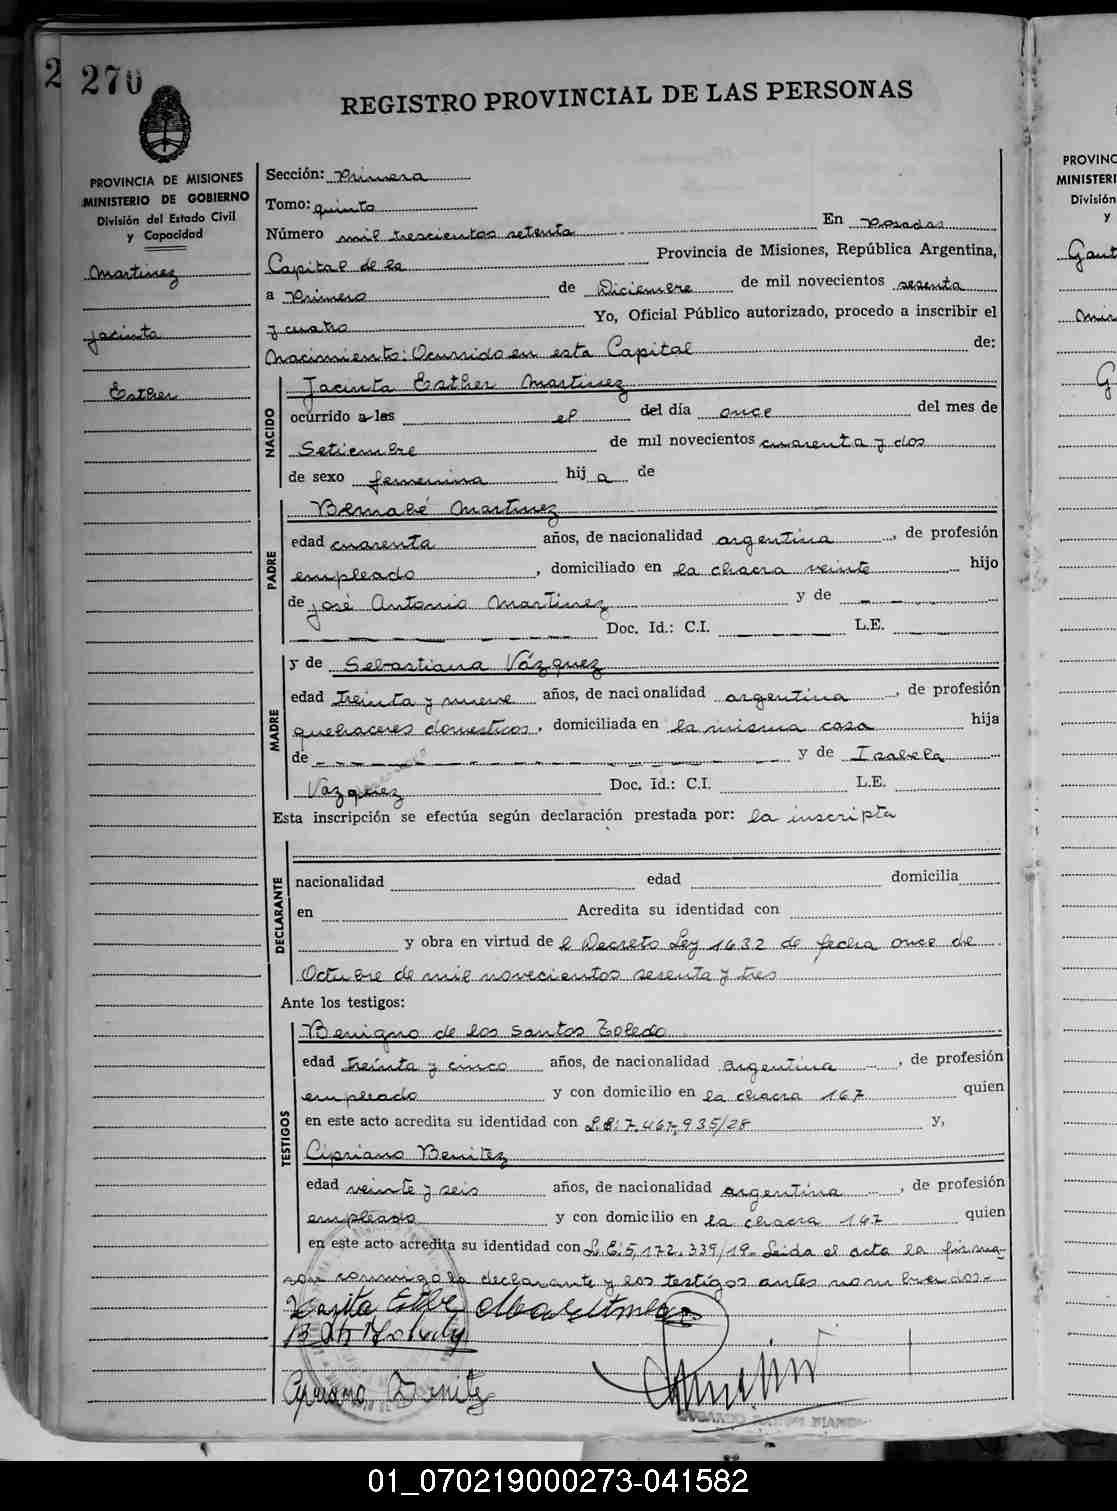 2 270
REGISTRO PROVINCIAL DE LAS PERSONAS
PROVINCIA DE MISIONES
MINISTERIO DE GOBIERNO
División del Estado Civil
y Capacidad
Martinez
Jacinta
Esther
Sección: Primera
Tomo: quinto
Número mil trescientos setenta En Posadas
Capital de la Provincia de Misiones, República Argentina,
a Primero de Diciembre de mil novecientos sesenta
y cuatro Yo, Oficial Público autorizado, procedo a inscribir el
Nacimiento: Ocurrido en esta Capital de:
NACIDO
Jacinta Esther Martinez
ocurrido a las el del día once del mes de
Setiembre de mil novecientos cuarenta y dos
de sexo femenina hij a de
PADRE
Bernabé Martinez
edad cuarenta años, de nacionalidad argentina, de profesión
empleado, domiciliado en la chacra veinte hijo
de José Antonio Martinez y de
Doc. Id.: C.I. L.E.
MADRE
y de Sebastiana Vázquez
edad treinta y nueve años, de nacionalidad argentina, de profesión
quehaceres domesticos, domiciliada en la misma casa hija
de y de Isabela
Vazquez Doc. Id.: C.I. L.E.
Esta inscripción se efectúa según declaración prestada por: la inscripta
DECLARANTE
nacionalidad edad domicilia
en Acredita su identidad con
y obra en virtud de l Decreto Ley 1432 de fecha once de
Octubre de mil novecientos sesenta y tres
Ante los testigos:
TESTIGOS
Benigno de los Santos Toledo
edad treinta y cinco años, de nacionalidad argentina, de profesión
empleado y con domicilio en la chacra 167 quien
en este acto acredita su identidad con L.E: 7.467.935/28 y,
Cipriano Benitez
edad veinte y seis años, de nacionalidad argentina, de profesión
empleado y con domicilio en la chacra 167 quien
en este acto acredita su identidad con L.E: 5,172.339/19- Leida el acta la firma-
ron conmigo la declarante y los testigos antes nombrados.-
Cipriano Benitez
PROVINC
MINISTERI
División
y
01_070219000273-041582